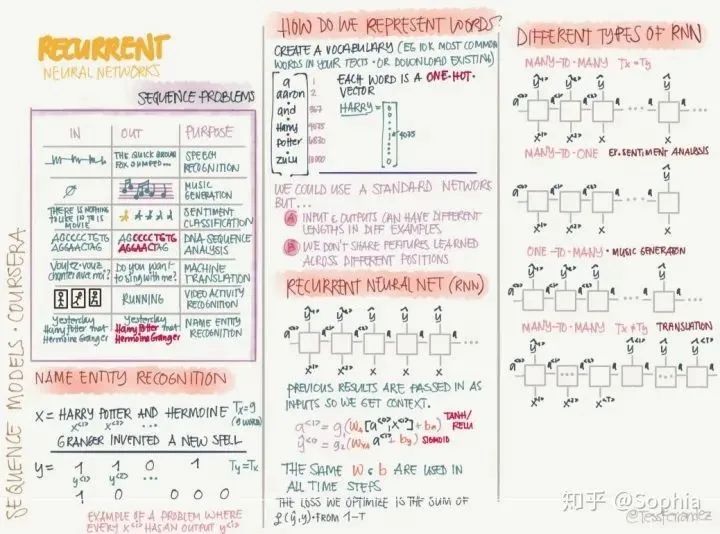 RECURRENT
NEURAL NETWORKS
SEQUENCE PROBLEMS
IN OUT PURPOSE
THE QUICK BROWN FOX JUMPED... SPEECH RECOGNITION
∅ MUSIC GENERATION
THERE IS NOTHING TO LIKE IN THIS MOVIE SENTIMENT CLASSIFICATION
AGCCCCTGTG AGGAACTAG AGCCCCTGTG AGGAACTAG DNA-SEQUENCE ANALYSIS
Voulez-vous chanter avec moi? Do you want to sing with me? MACHINE TRANSLATION
RUNNING VIDEO ACTIVITY RECOGNITION
Yesterday Harry Potter met Hermoine Granger Yesterday Harry Potter met Hermoine Granger NAME ENTITY RECOGNITION
NAME ENTITY RECOGNITION
X = HARRY POTTER AND HERMOINE Tx=9
x<1> x<2> ... (9 WORDS)
GRANGER INVENTED A NEW SPELL
y = 1 1 0 1 Ty=Tx
y<1> y<2> ...
1 0 0 0 0
EXAMPLE OF A PROBLEM WHERE
EVERY X<i> HAS AN OUTPUT y<i>
SEQUENCE MODELS · COURSERA
HOW DO WE REPRESENT WORDS?
CREATE A VOCABULARY (EG 10K MOST COMMON
WORDS IN YOUR TEXTS · OR DOWNLOAD EXISTING)
a 1
aaron 2
and 367
Harry 4075
Potter 6830
zulu 10000
EACH WORD IS A ONE·HOT·
VECTOR
HARRY = 4075
WE COULD USE A STANDARD NETWORK
BUT...
A INPUT & OUTPUTS CAN HAVE DIFFERENT
LENGTHS IN DIFF EXAMPLES
B WE DON'T SHARE FEATURES LEARNED
ACROSS DIFFERENT POSITIONS
RECURRENT NEURAL NET (RNN)
PREVIOUS RESULTS ARE PASSED IN AS
INPUTS SO WE GET CONTEXT.
TANH/RELU
SIGMOID
THE SAME W & b ARE USED IN
ALL TIME STEPS
THE LOSS WE OPTIMIZE IS THE SUM OF
ℒ(ŷ,y) · FROM 1-T
DIFFERENT TYPES OF RNN
MANY-TO-MANY Tx=Ty
MANY·TO·ONE EX. SENTIMENT ANALYSIS
ONE-TO-MANY · MUSIC GENERATION
MANY·TO·MANY Tx≠Ty TRANSLATION
知乎 @Sophia
@TessFerrandez